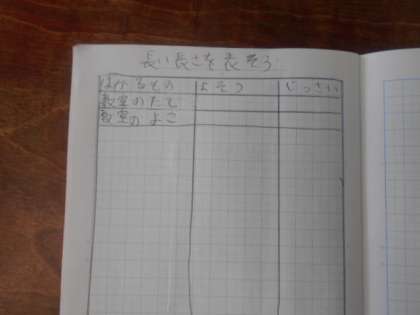 長い長さを表そう
はかるもの よそう じっさい
教室のたて
教室のよこ